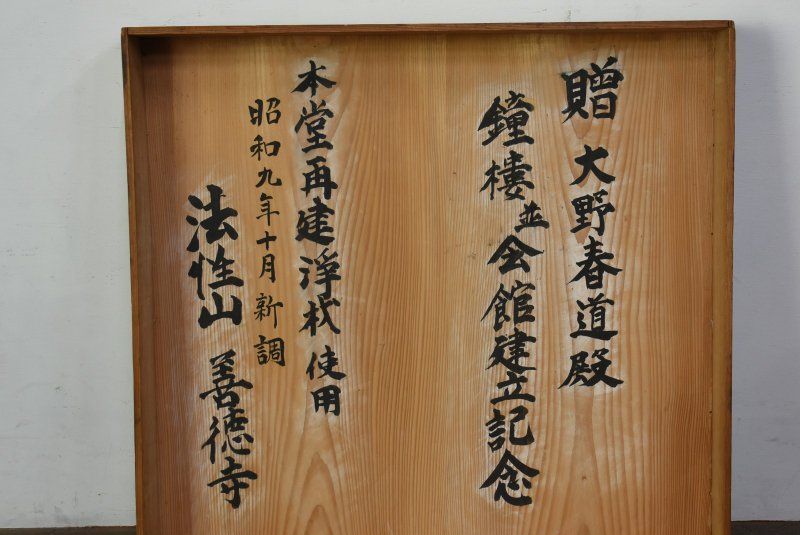 贈 大野春道殿
鐘楼並会館建立記念
本堂再建浮材使用
昭和九年十月新調
法性山 善徳寺